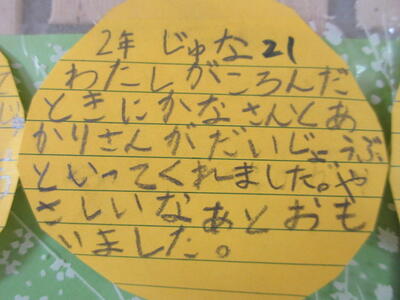 2年 じゅな21
わたしがころんだ
ときにかなさんとあ
かりさんがだいじょうぶ
といってくれました。や
さしいなぁとおも
いました。